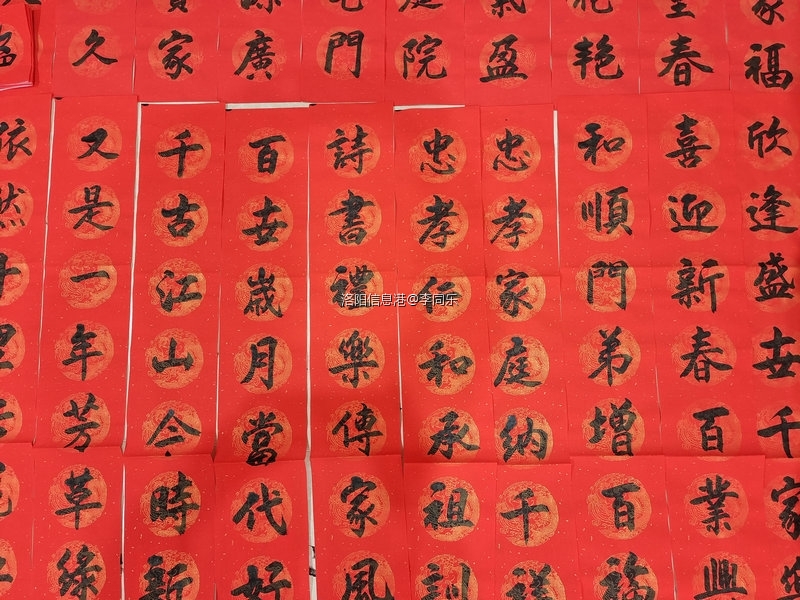 福
家
春
艳
盈
院
門
廣
家
久
欣逢盛世千家
喜迎新春百業興
和順門弟增百福
忠孝家庭納千祥
忠孝仁和承祖訓
詩書禮樂傳家風
百世歲月當代好
千古江山今時新
又是一年芳草綠
依然
洛阳信息港@李同乐